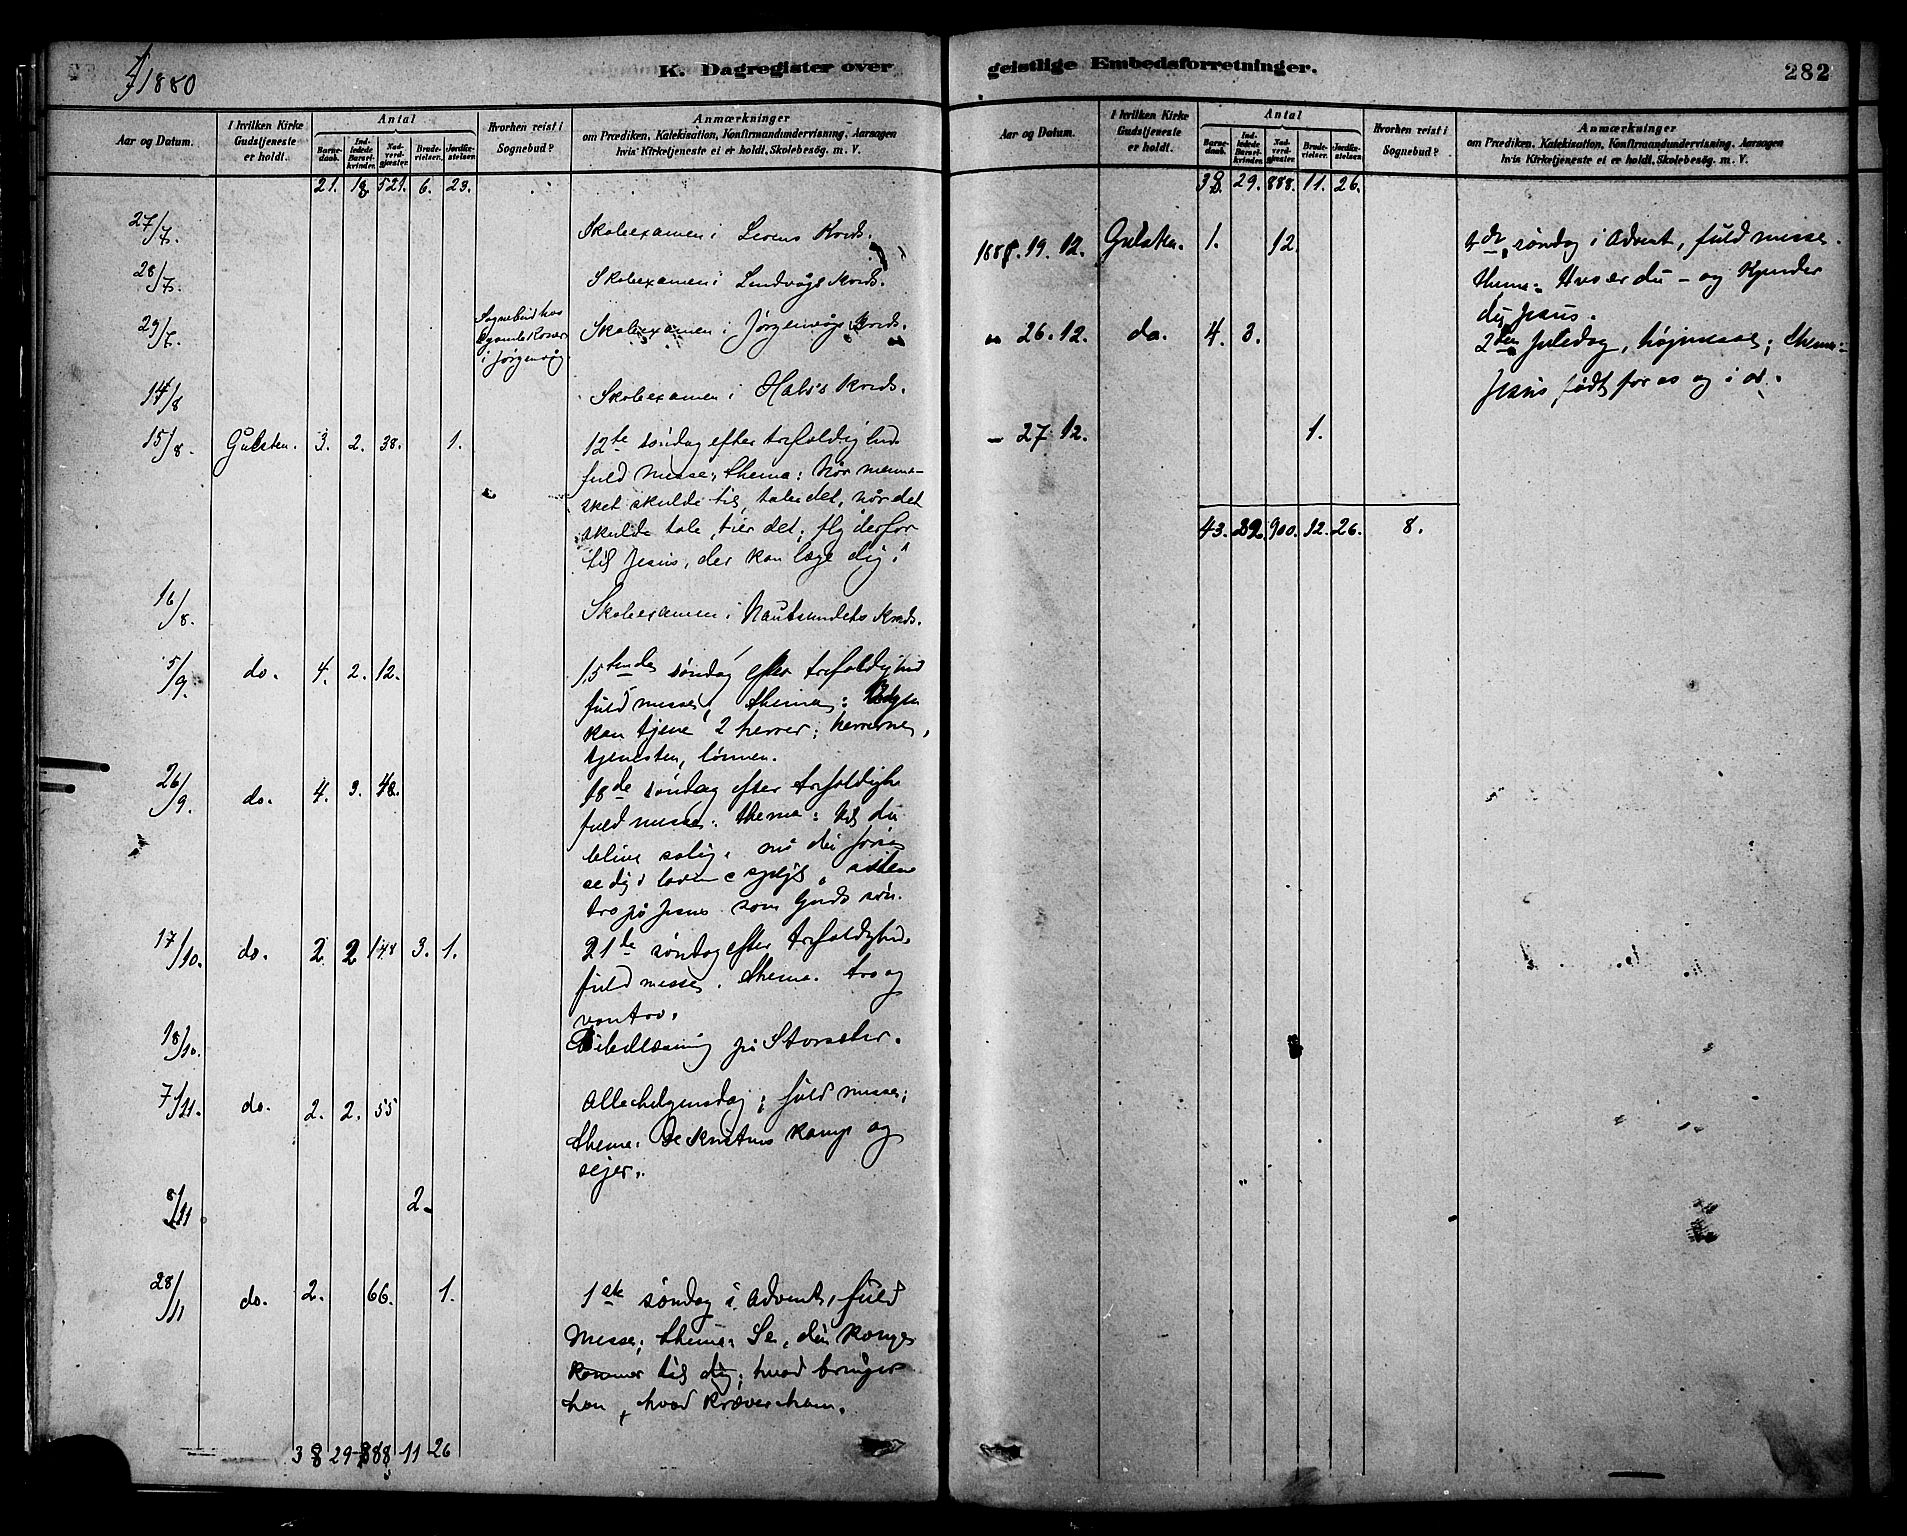 1880
K. Dagregister over
Aar og Datum.
I hvilken Kirke Gudstjeneste er holdt.
Antal
Barnedaab.
Indledede Barselkvinder.
Nadverdgjester.
Brudevielser.
Jordfæstelser.
Hvorhen reist i Sognebud?
Anmærkninger
om Prædiken, Katekisation, Konfirmandundervisning, Aarsagen
hvis Kirketjeneste ei er holdt, Skolebesög. m. V.
21. 18 521. 6. 23.
27/7. Skoleexamen i Kreds.
28/7. Skoleexamen i Kreds.
29/7. Sognebud hos
i Jørgenvåg
Skoleexamen i Jørgenvågs Kreds.
14/8 Skoleexamen i Halsis Kreds.
15/8. Gulsten. 3. 2. 38. 1. 12te søndag efter trefoldighed
fuld messe; thema: Når menne-
sket skulde tie, taler det, når det
skulde tale, tier det; fly derfor
til Jesus, der kan læge dig!
16/8. Skoleexamen i Nautsundets Kreds.
5/9. do. 4. 2. 12. 15tende søndag efter trefoldighed
fuld messe, thema: Ingen
kan tjene 2 herrer; herrerne,
tjenesten, lønnen.
26/9. do. 4. 3. 48. 18de søndag efter trefoldigh
fuld messe. thema: Vil du
blive salig, må du først
se dig i lovens spejl,
tro på Jesus som Guds søn.
17/10. do. 2 2 148 3. 1. 21de søndag efter trefoldighed.
fuld messe. thema. tro og
vantro.
18/10. Bibellæsning på Storsæter.
7/11. do. 2. 2. 55 Allehelgensdag; fuld messe;
thema: De kristnes kamp og
sejer.
8/11 2.
28/11 do. 2. 66. 1. 1ste søndag i Advent, fuld
messe; thema: Se, din konge
kommer til dig; hvad bringer
han, hvad kræver han.
38 29 888 11 26
geistlige Embedsforretninger.
282
Aar og Datum.
I hvilken Kirke Gudstjeneste er holdt.
Antal
Barnedaab.
Indledede Barselkvinder.
Nadverdgjester.
Brudevielser.
Jordfæstelser.
Hvorhen reist i Sognebud?
Anmærkninger
om Prædiken, Katekisation, Konfirmandundervisning, Aarsagen
hvis Kirketjeneste ei er holdt, Skolebesög. m. V.
38. 29. 888. 11. 26.
19. 12. Gulsten. 1. 12. søndag i Advent, fuld messe.
thema: Hvo er du - og Kjender
du Jesus.
26. 12. do. 4. 3. 2den Juledag, højmesse; thema:
Jesus født for os og i os.
27 12. 1.
43. 32. 900. 12. 26. 8.